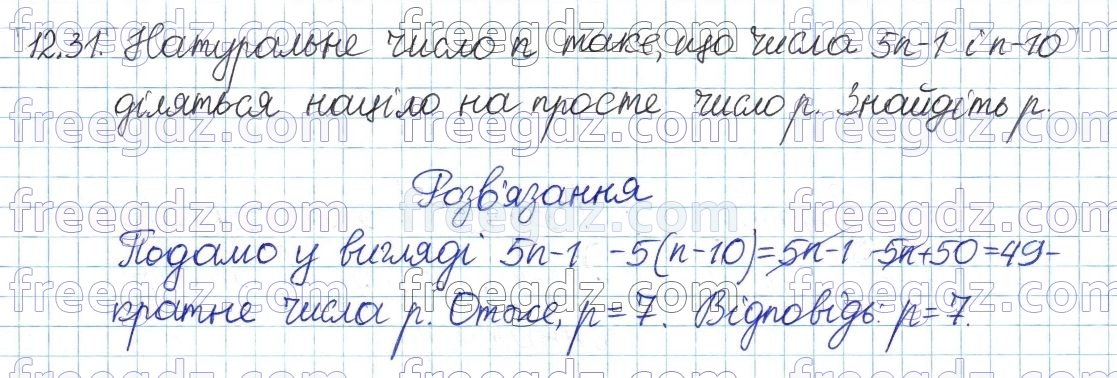 12.31. Натуральне число n таке, що числа 5n-1 і n-10
діляться націло на просте число p. Знайдіть p.
Розв'язання
Подамо у вигляді 5n-1 -5(n-10)=5n-1 -5n+50=49-
кратне числа p. Отже, p=7. Відповідь: p=7.
freegdz.com